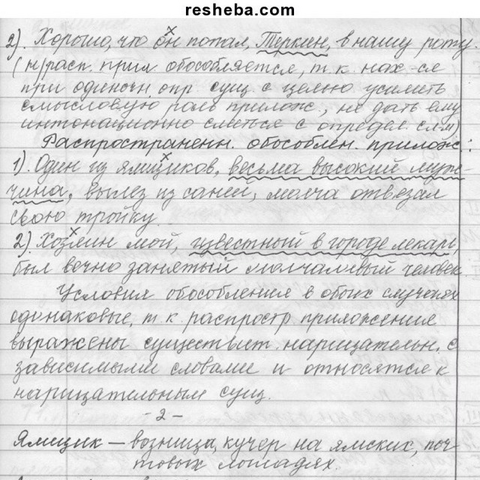 resheba.com
2). Хорошо, что он попал, Теркин, в нашу роту.
(н)расп. прил обособляется, т. к нах-ся
при одиночн опр сущ с целью усилить
смысловую роль прилож, не дать ему
интонационно слиться с определ. слм)
Распространенн. обособлен. прилож:
1). Один из ямщиков, весьма высокий муж-
чина, вылез из саней, молча отвязал
свою тройку.
2). Хозяин мой, известный в городе лекарь,
был вечно занятый молчаливый человек
Условия обособления в обоих случаях
одинаковые, т. к распростр приложения
выражены существит. нарицательн. с
зависимыми словами и относятся к
нарицательным сущ.
- 2 -
Ямщик – возница, кучер на ямских, поч-
товых лошадях.